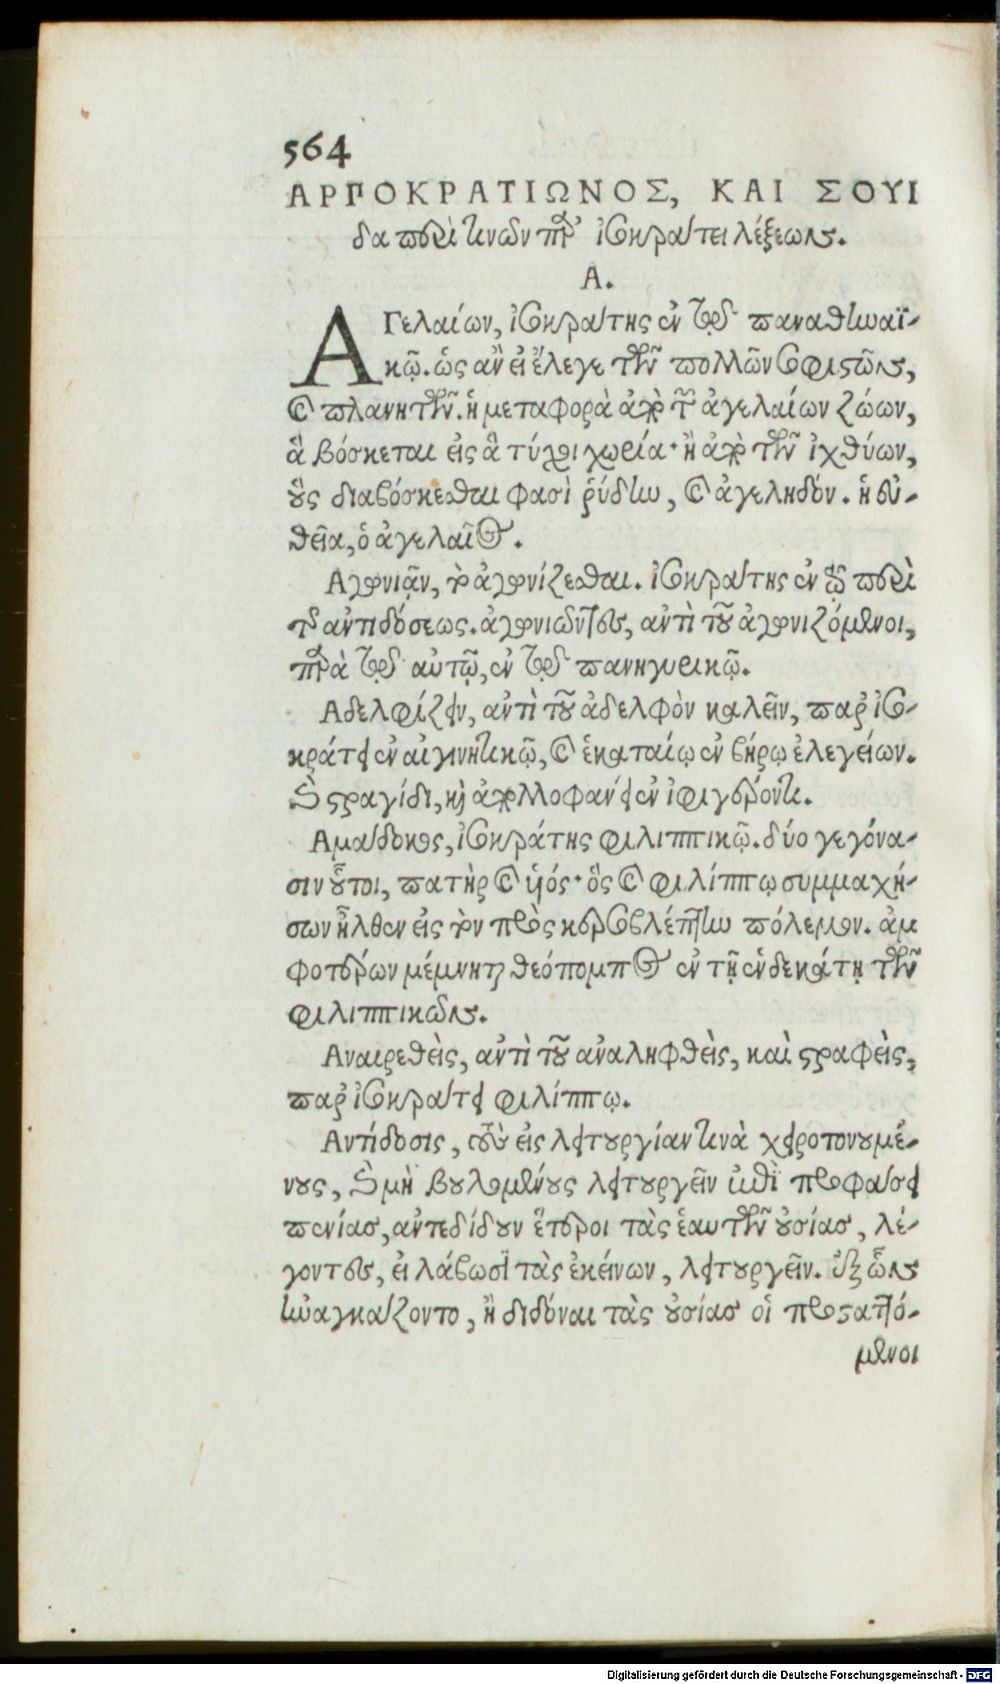 564
ΑΡΠΟΚΡΑΤΙΩΝΟΣ, ΚΑΙ ΣΟΥΙ
δα περὶ τινῶν παρ' ἰσοκράτει λέξεων.
Α.
ΑΓελαίων, ἰσοκράτης ἐν τῷ παναθηναϊ-
κῷ. ὡς ἂν εἰ ἔλεγε τῶν πολλῶν σοφιστῶν,
καὶ πλανητῶν. ἡ μεταφορὰ ἀπὸ τῶν ἀγελαίων ζώων,
ἃ βόσκεται εἰς ἃ τύχοι χωρία· ἢ ἀπὸ τῶν ἰχθύων,
οὓς διαβόσκεσθαι φασὶ ῥύδην, καὶ ἀγεληδόν. ἡ εὐ-
θεῖα, ὁ ἀγελαῖος.
Αγωνιᾷν, τὸ ἀγωνίζεσθαι. ἰσοκράτης ἐν τῷ περὶ
τῆς ἀντιδόσεως. ἀγωνιῶντες, ἀντὶ τοῦ ἀγωνιζόμενοι,
παρὰ τῷ αὐτῷ, ἐν τῷ πανηγυρικῷ.
Αδελφίζειν, ἀντὶ τοῦ ἀδελφὸν καλεῖν, παρ' ἰσο-
κράτει ἐν αἰγινητικῷ, καὶ ἑκαταίῳ ἐν βήρῳ ἐλεγείων.
καὶ στραγίδι, καὶ ἀπολλοφανει ἐν ἰφιγέροντι.
Αμάδοκος, ἰσοκράτης φιλιππικῷ. δύο γεγόνα-
σιν οὗτοι, πατὴρ καὶ υἱός· ὃς καὶ φιλίππῳ συμμαχή-
σων ἦλθεν εἰς τὸν πρὸς κερσοβλέπτην πόλεμον. ἀμ
φοτέρων μέμνηται θεόπομπος ἐν τῇ ἑνδεκάτῃ τῶν
φιλιππικῶν.
Αναιρεθεὶς, ἀντὶ τοῦ ἀναληφθεὶς, καὶ στραφεὶς,
παρ' ἰσοκράτει φιλίππῳ.
Αντίδοσις, ὅταν εἰς λειτουργίαν τινὰ χειροτονουμέ-
νους, καὶ μὴ βουλομένους λειτουργεῖν ἐπὶ προφάσει
πενίας, ἀντεδίδουν ἕτεροι τὰς ἑαυτῶν οὐσίας, λέ-
γοντες, εἰ λάβωσι τὰς ἐκείνων, λειτουργεῖν. ἐξ ὧν
ἠναγκάζοντο, ἢ διδόναι τὰς οὐσίας οἱ προστατό-
μενοι
Digitalisierung gefördert durch die Deutsche Forschungsgemeinschaft - DFG